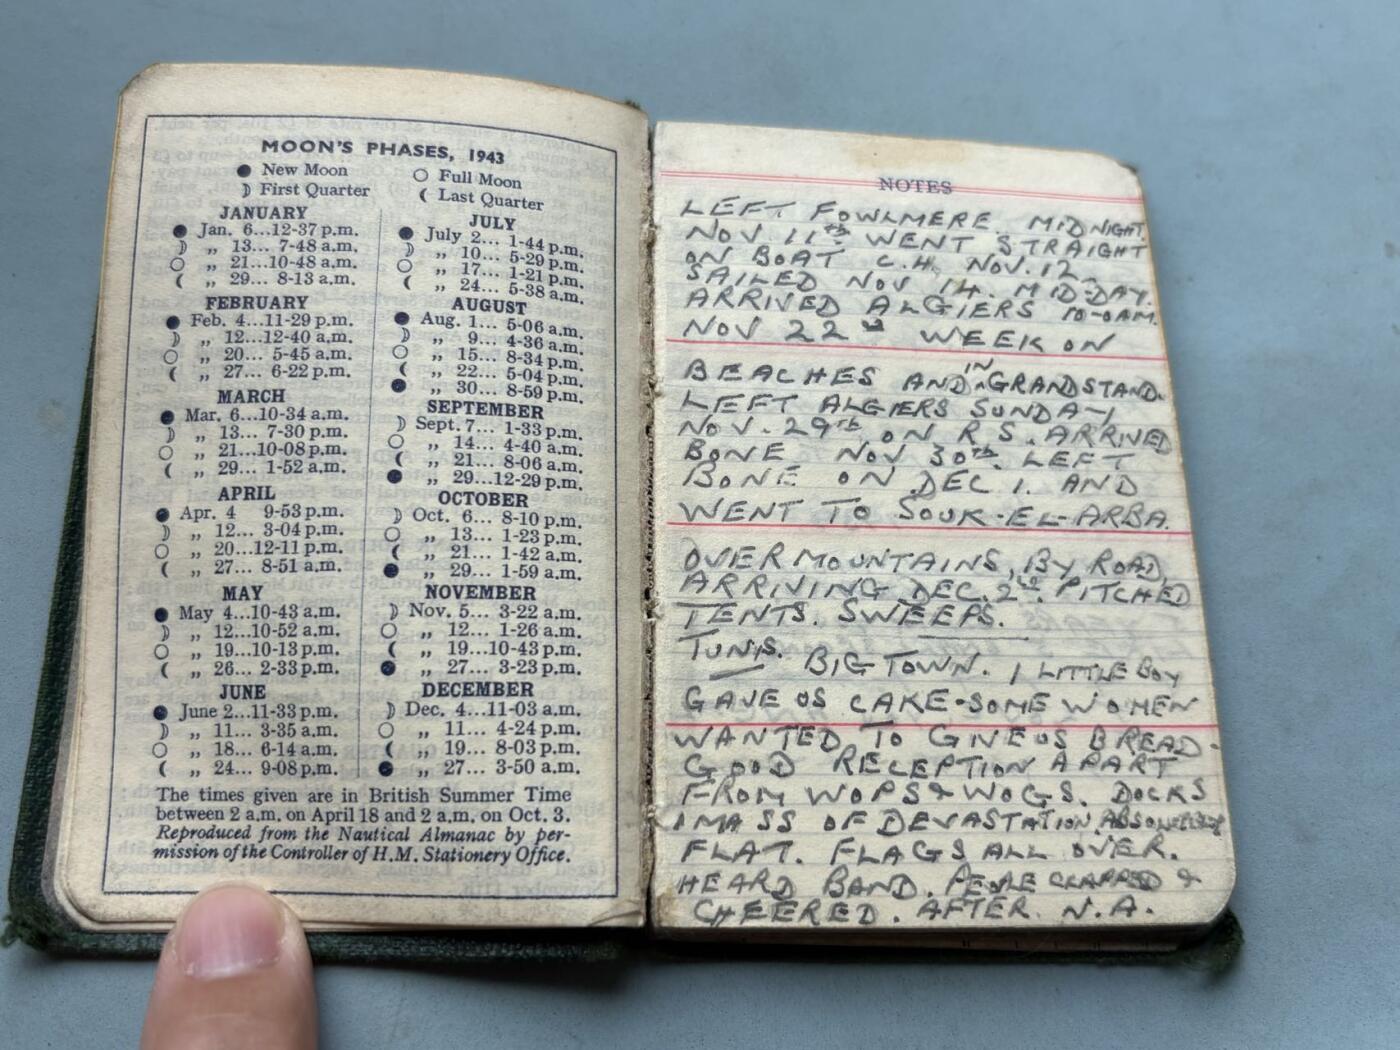 MOON'S PHASES, 1943
● New Moon ○ Full Moon
☽ First Quarter ☾ Last Quarter
JANUARY
● Jan. 6...12-37 p.m.
☽ „ 13... 7-48 a.m.
○ „ 21...10-48 a.m.
☾ „ 29... 8-13 a.m.
FEBRUARY
● Feb. 4...11-29 p.m.
☽ „ 12...12-40 a.m.
○ „ 20... 5-45 a.m.
☾ „ 27... 6-22 p.m.
MARCH
● Mar. 6...10-34 a.m.
☽ „ 13... 7-30 p.m.
○ „ 21...10-08 p.m.
☾ „ 29... 1-52 a.m.
APRIL
● Apr. 4 9-53 p.m.
☽ „ 12... 3-04 p.m.
○ „ 20...12-11 p.m.
☾ „ 27... 8-51 a.m.
MAY
● May 4...10-43 a.m.
☽ „ 12...10-52 a.m.
○ „ 19...10-13 p.m.
☾ „ 26... 2-33 p.m.
JUNE
● June 2...11-33 p.m.
☽ „ 11... 3-35 a.m.
○ „ 18... 6-14 a.m.
☾ „ 24... 9-08 p.m.
JULY
● July 2... 1-44 p.m.
☽ „ 10... 5-29 p.m.
○ „ 17... 1-21 p.m.
☾ „ 24... 5-38 a.m.
AUGUST
● Aug. 1... 5-06 a.m.
☽ „ 9... 4-36 a.m.
○ „ 15... 8-34 p.m.
☾ „ 22... 5-04 p.m.
● „ 30... 8-59 p.m.
SEPTEMBER
☽ Sept. 7... 1-33 p.m.
○ „ 14... 4-40 a.m.
☾ „ 21... 8-06 a.m.
● „ 29...12-29 p.m.
OCTOBER
☽ Oct. 6... 8-10 p.m.
○ „ 13... 1-23 p.m.
☾ „ 21... 1-42 a.m.
● „ 29... 1-59 a.m.
NOVEMBER
☽ Nov. 5... 3-22 a.m.
○ „ 12... 1-26 a.m.
☾ „ 19...10-43 p.m.
● „ 27... 3-23 p.m.
DECEMBER
☽ Dec. 4...11-03 a.m.
○ „ 11... 4-24 p.m.
☾ „ 19... 8-03 p.m.
● „ 27... 3-50 a.m.
The times given are in British Summer Time
between 2 a.m. on April 18 and 2 a.m. on Oct. 3.
Reproduced from the Nautical Almanac by per-
mission of the Controller of H.M. Stationery Office.
NOTES
LEFT FOWLMERE MIDNIGHT
NOV 11th WENT STRAIGHT
ON BOAT C.H. NOV. 12
SAILED NOV 14. MID-DAY.
ARRIVED ALGIERS 10-0AM.
NOV 22 WEEK ON
BEACHES AND IN GRANDSTAND.
LEFT ALGIERS SUNDAY
NOV. 29th ON R.S. ARRIVED
BONE NOV 30th. LEFT
BONE ON DEC 1. AND
WENT TO SOUK-EL-ARBA.
OVER MOUNTAINS, BY ROAD,
ARRIVING DEC. 2nd. PITCHED
TENTS. SWEEPS.
TUNIS. BIG TOWN. 1 LITTLE BOY
GAVE US CAKE-SOME WOMEN
WANTED TO GIVE US BREAD-
GOOD RECEPTION APART
FROM WOPS & WOGS. DOCKS
1 MASS OF DEVASTATION. ABSOLUTELY
FLAT. FLAGS ALL OVER.
HEARD BAND. PEOPLE CLAPPED &
CHEERED. AFTER N.A.